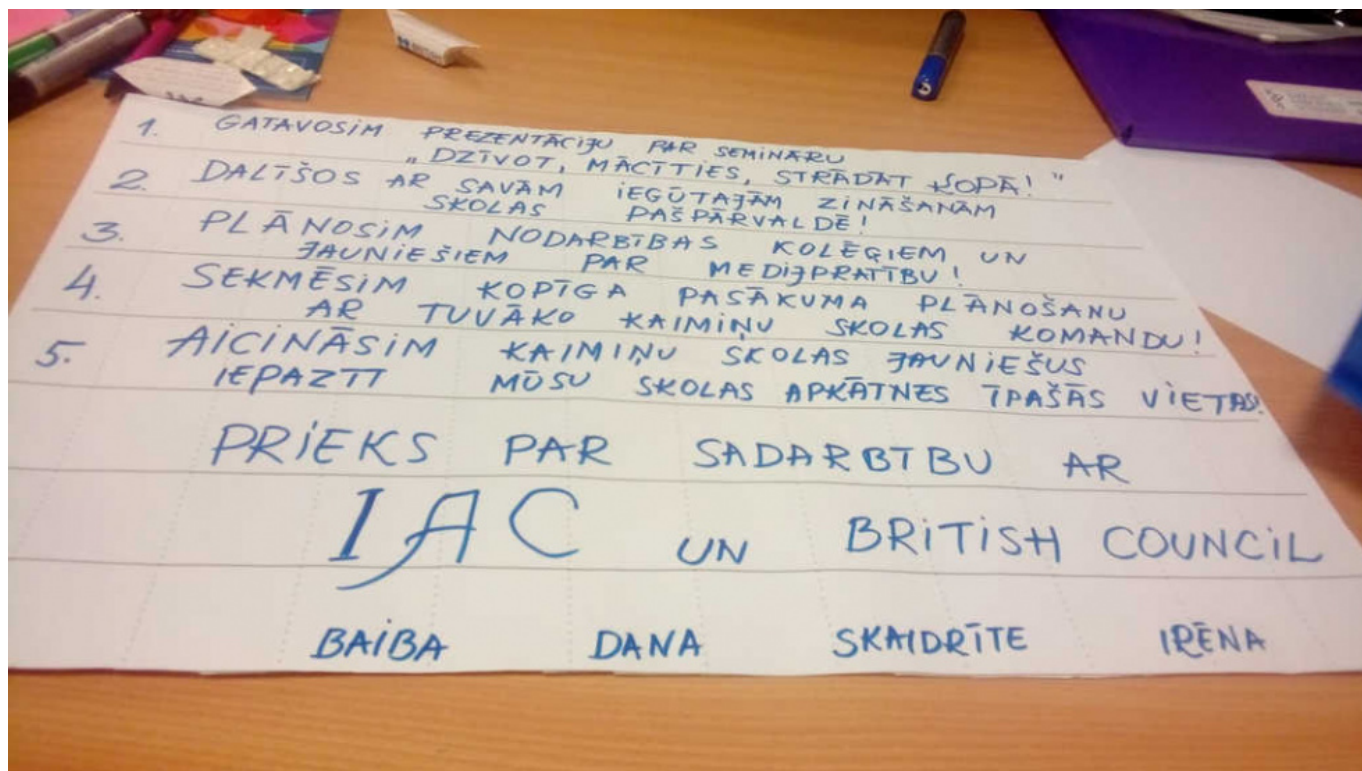 1. GATAVOSIM PREZENTĀCIJU PAR SEMINĀRU
"DZĪVOT, MĀCĪTIES, STRĀDĀT KOPĀ!"
2. DALĪŠOS AR SAVĀM IEGŪTAJĀM ZINĀŠANĀM
SKOLAS PAŠPĀRVALDĒ!
3. PLĀNOSIM NODARBĪBAS KOLĒĢIEM UN
JAUNIEŠIEM PAR MEDIJPRATĪBU!
4. SEKMĒSIM KOPĪGA PASĀKUMA PLĀNOŠANU
AR TUVĀKO KAIMIŅU SKOLAS KOMANDU!
5. AICINĀSIM KAIMIŅU SKOLAS JAUNIEŠUS
IEPAZĪT MŪSU SKOLAS APKĀTNES ĪPAŠĀS VIETAS.
PRIEKS PAR SADARBĪBU AR
IAC UN BRITISH COUNCIL
BAIBA DANA SKAIDRĪTE IRĒNA